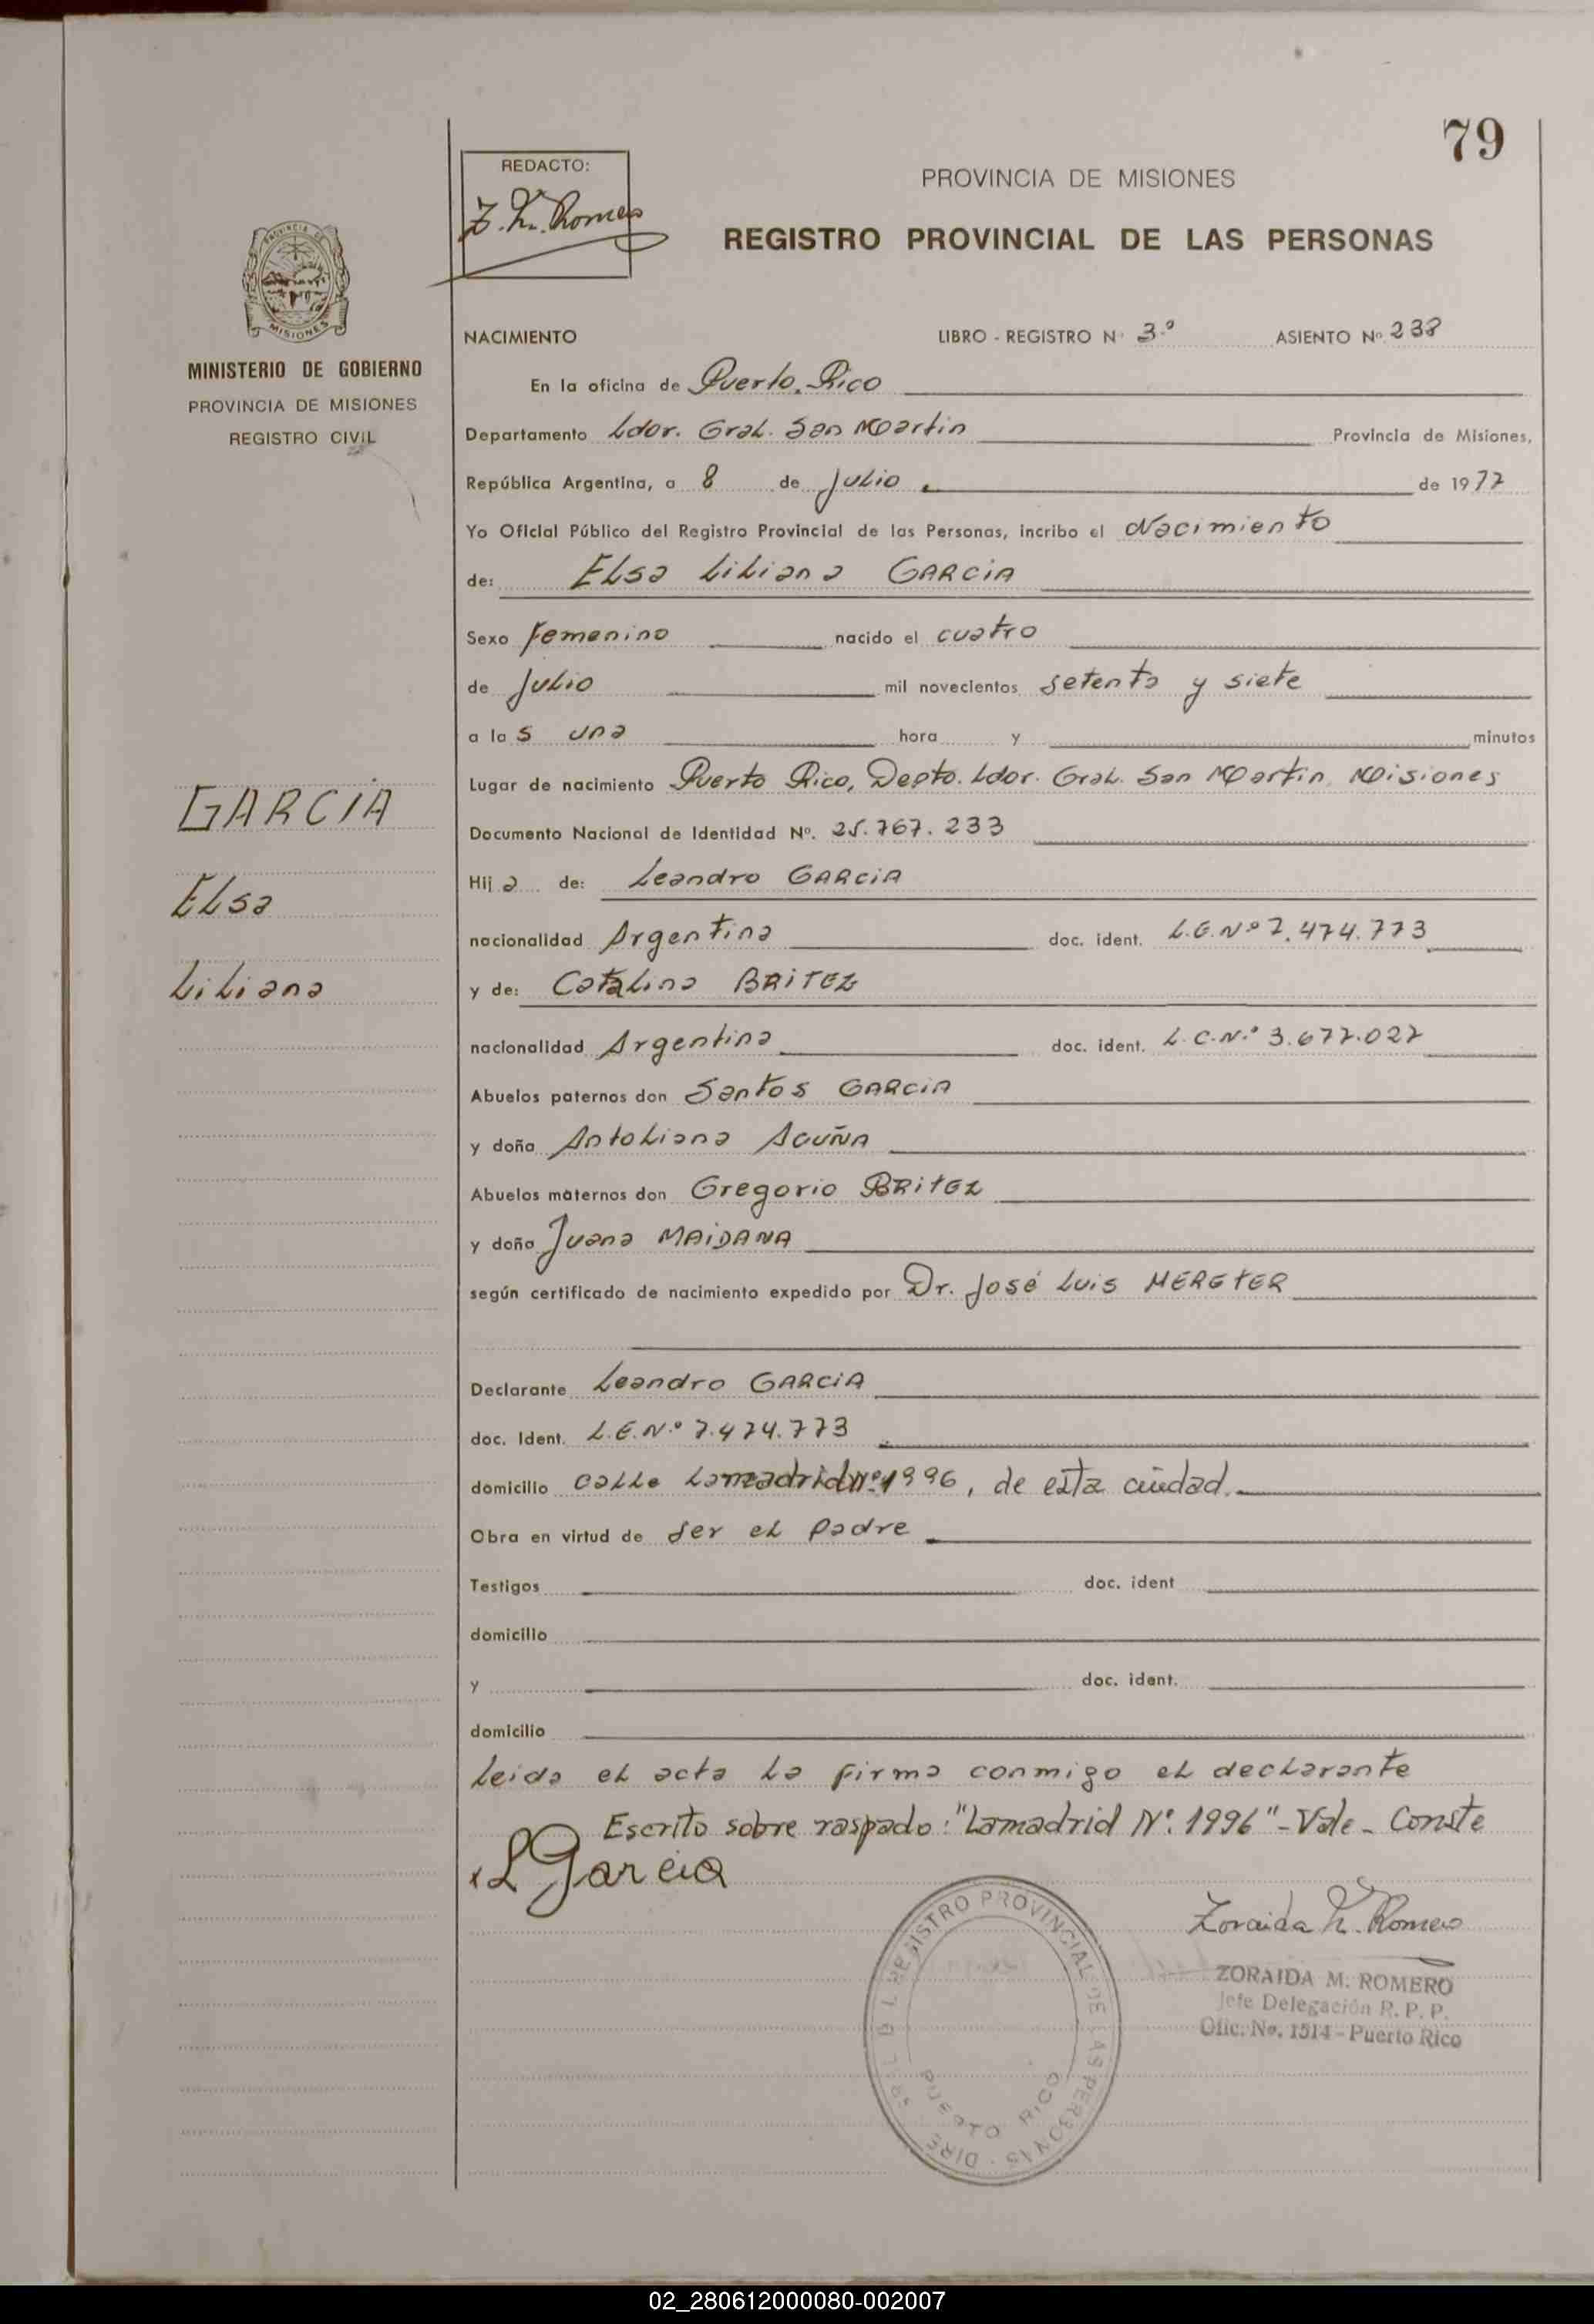 79
REDACTO:
Z. M. Romero
PROVINCIA DE MISIONES
REGISTRO PROVINCIAL DE LAS PERSONAS
PROVINCIA DE MISIONES
MINISTERIO DE GOBIERNO
PROVINCIA DE MISIONES
REGISTRO CIVIL
NACIMIENTO LIBRO - REGISTRO Nº 3.º ASIENTO Nº 238
En la oficina de Puerto Rico
Departamento Ldor. Gral. San Martin Provincia de Misiones,
República Argentina, a 8 de Julio de 1977
Yo Oficial Público del Registro Provincial de las Personas, incribo el Nacimiento
de: Elsa Liliana GARCIA
Sexo femenino nacido el cuatro
de Julio mil novecientos setenta y siete
a las una hora y minutos
Lugar de nacimiento Puerto Rico, Depto. Ldor. Gral. San Martin, Misiones
Documento Nacional de Identidad Nº. 25.767.233
Hija de: Leandro GARCIA
nacionalidad Argentina doc. ident. L.E.Nº 7.474.773
y de: Catalina BRITEZ
nacionalidad Argentina doc. ident. L.C.N.º 3.677.027
Abuelos paternos don Santos GARCIA
y doña Antoliana ACUÑA
Abuelos maternos don Gregorio BRITEZ
y doña Juana MAIDANA
según certificado de nacimiento expedido por Dr. José Luis
Declarante Leandro GARCIA
doc. Ident. L.E.N.º 7.474.773
domicilio calle Lamadrid Nº 1996, de esta ciudad.
Obra en virtud de ser el padre
Testigos doc. ident
domicilio
y doc. ident.
domicilio
Leida el acta la firma conmigo el declarante
Escrito sobre raspado: "Lamadrid Nº. 1996" - Vale - Conste
x L Garcia
Zoraida M. Romero
ZORAIDA M. ROMERO
Jefe Delegación R. P. P.
Ofic. No. 1514 - Puerto Rico
REGISTRO PROVINCIAL DE LAS PERSONAS
PUERTO RICO
GARCIA
Elsa
Liliana
02_280612000080-002007